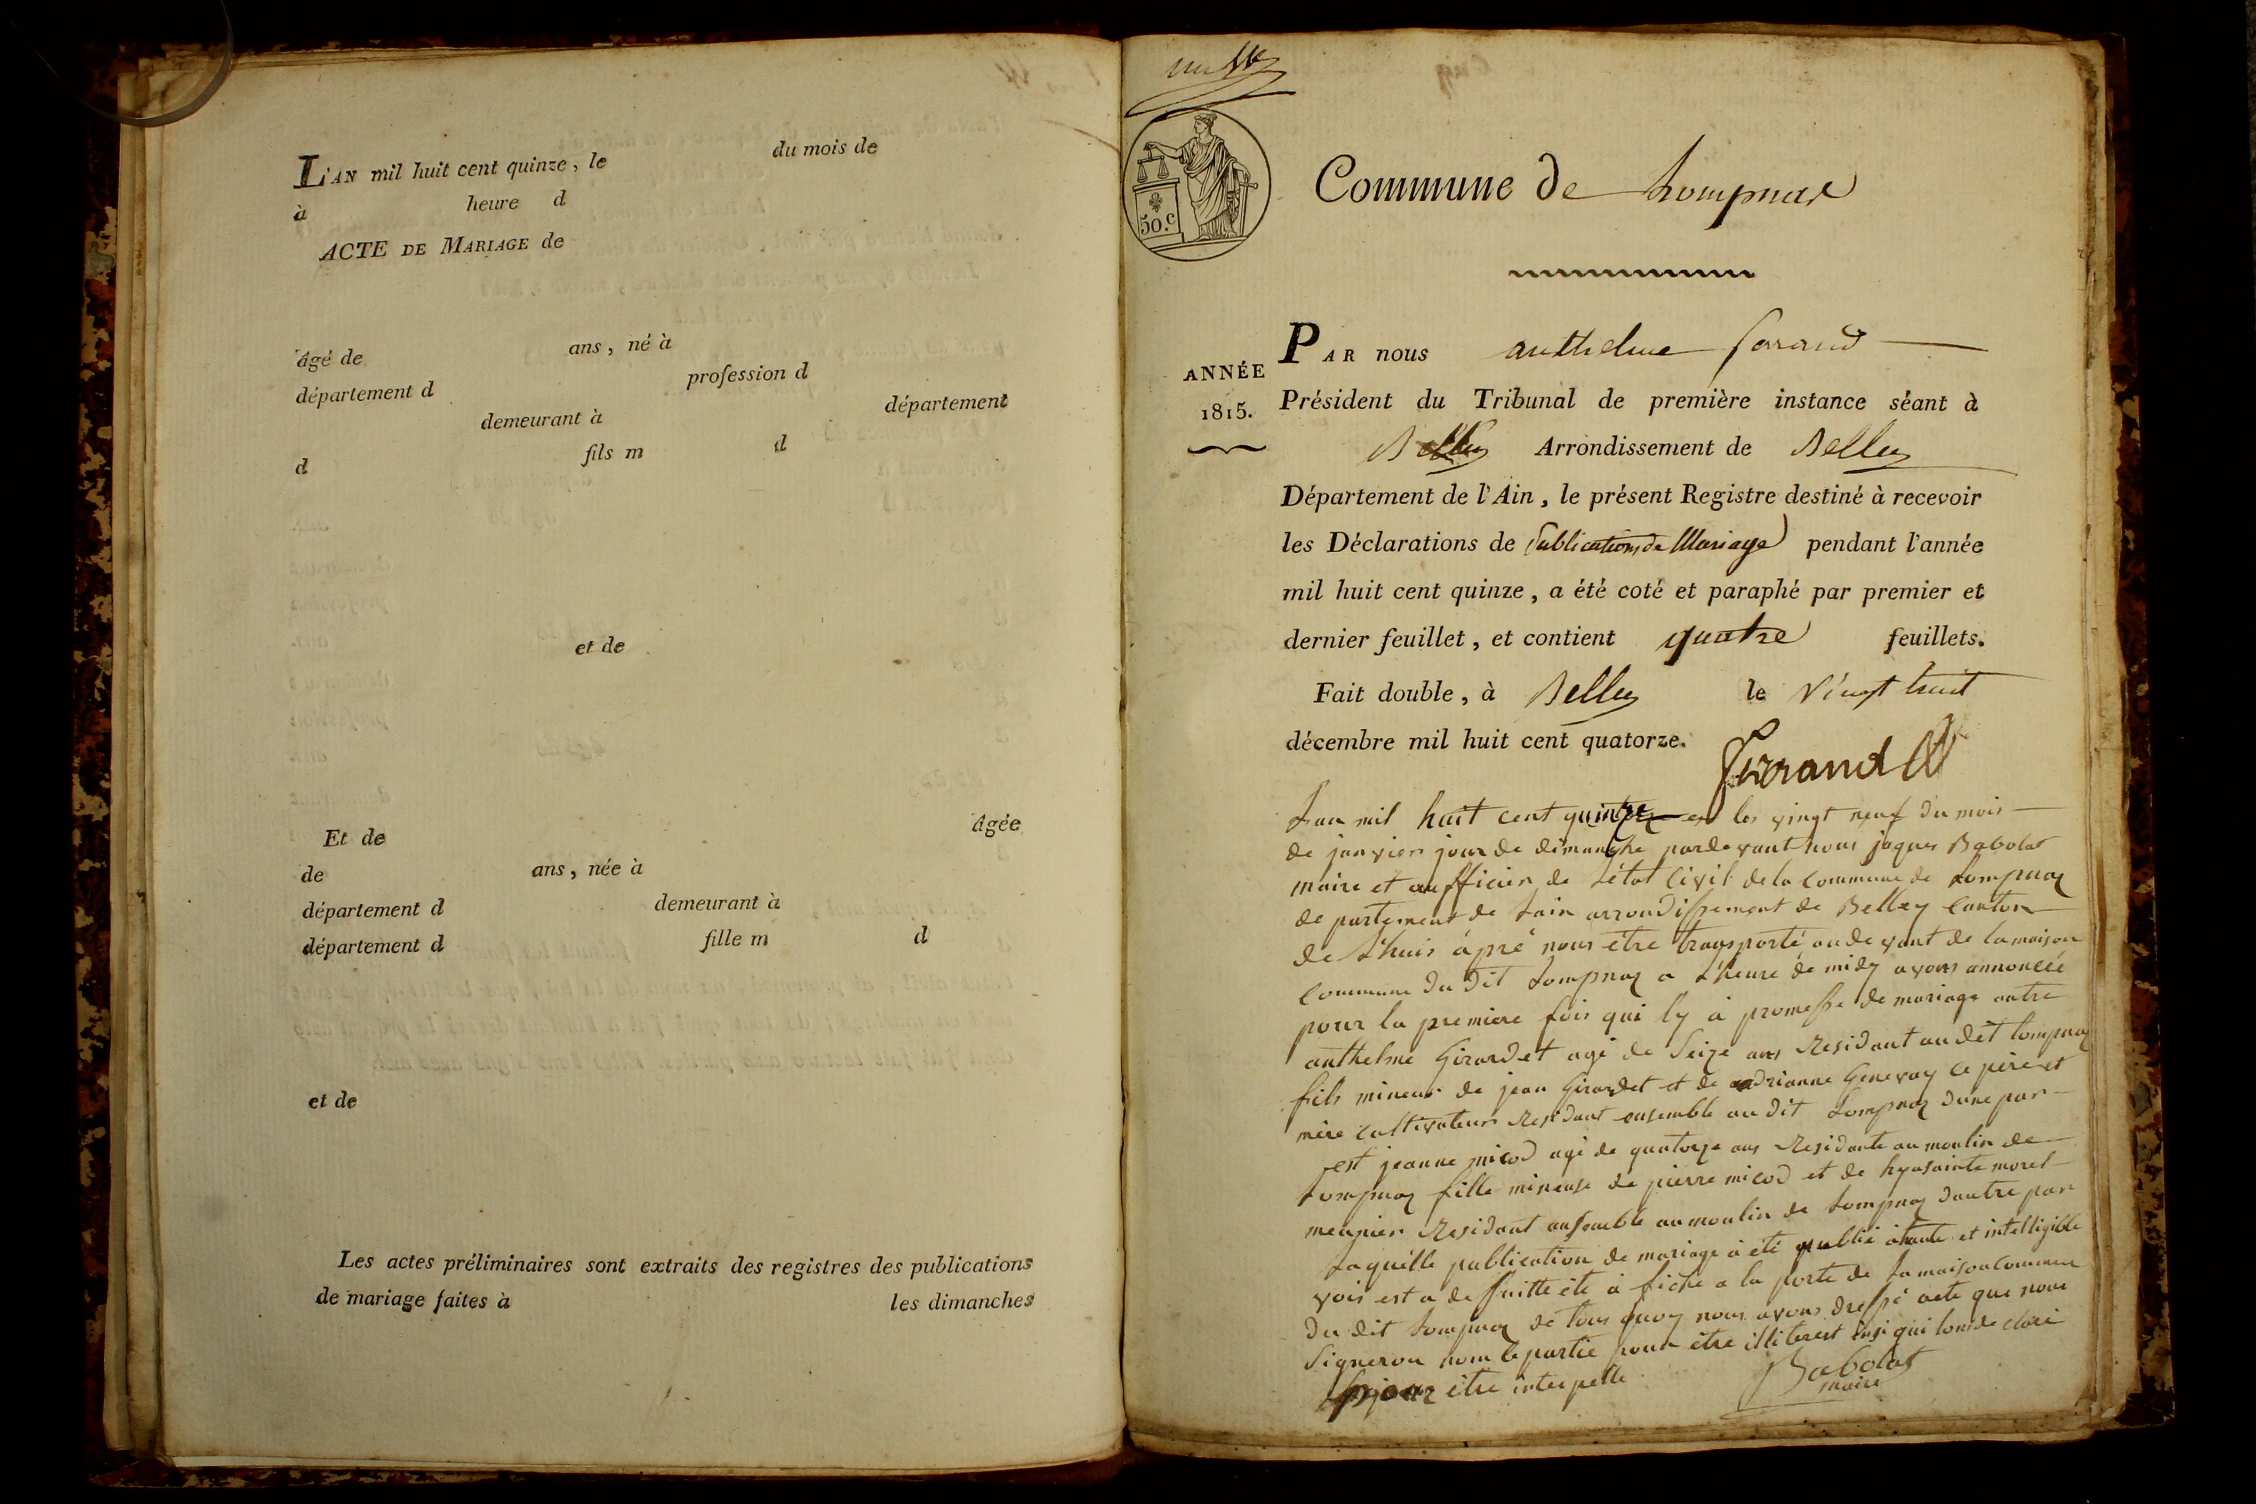 L'AN mil huit cent quinze, le du mois de
à heure d
ACTE DE MARIAGE de
âgé de ans, né à
département d profession d
demeurant à département
d fils m d
et de
Et de âgée
de ans, née à
département d demeurant à
département d fille m d
et de
Les actes préliminaires sont extraits des registres des publications
de mariage faites à les dimanches
50.c
Commune de Lompnas
ANNÉE
1815.
PAR nous anthelme ferrand
Président du Tribunal de première instance séant à
Belley Arrondissement de Belley
Département de l'Ain, le présent Registre destiné à recevoir
les Déclarations de Publications de Mariage pendant l'année
mil huit cent quinze, a été coté et paraphé par premier et
dernier feuillet, et contient quatre feuillets.
Fait double, à Belley le vingt huit
décembre mil huit cent quatorze.
ferrand
Lan mil huit cent quinze et les vingt neuf du mois
de janvier jour de dimanche pardevant nous jaques Babolat
maire et aufficier de Létat civil de la commune de Lompnaz
departement de Lain arrondissement de Belley canton
de Lhuis apré nous être transporté audevant de lamaison
commune du dit Lompnaz a Lheure de midy avons annoncée
pour la premiere fois qui ly à promesse de mariage antre
anthelme Girardet agé de Seize ans Residant au dit lompnaz
fils mineur de jean Girardet et de adrianne Genevay ce pere et
mere cultivateurs Residant ensemble au dit Lompnaz dune par
est jeanne micod agé de quatorze ans Residante au moulin de
Lompnaz fille mineuse de pierre micod et de hyasainte morel
meunier Residant ansemble au moulin de Lompnaz dautre par
Laquelle publication de mariage à été publié ahaute et intelligible
vois est a de Suitte été a fiché a la porte de Lamaison commun
du dit Lompnaz de tous quoy nous avons dressé acte que nous
Signeron nom le partie pour être illiterest insi qui lonsde claré
pour être interpellé
Babolat
maire